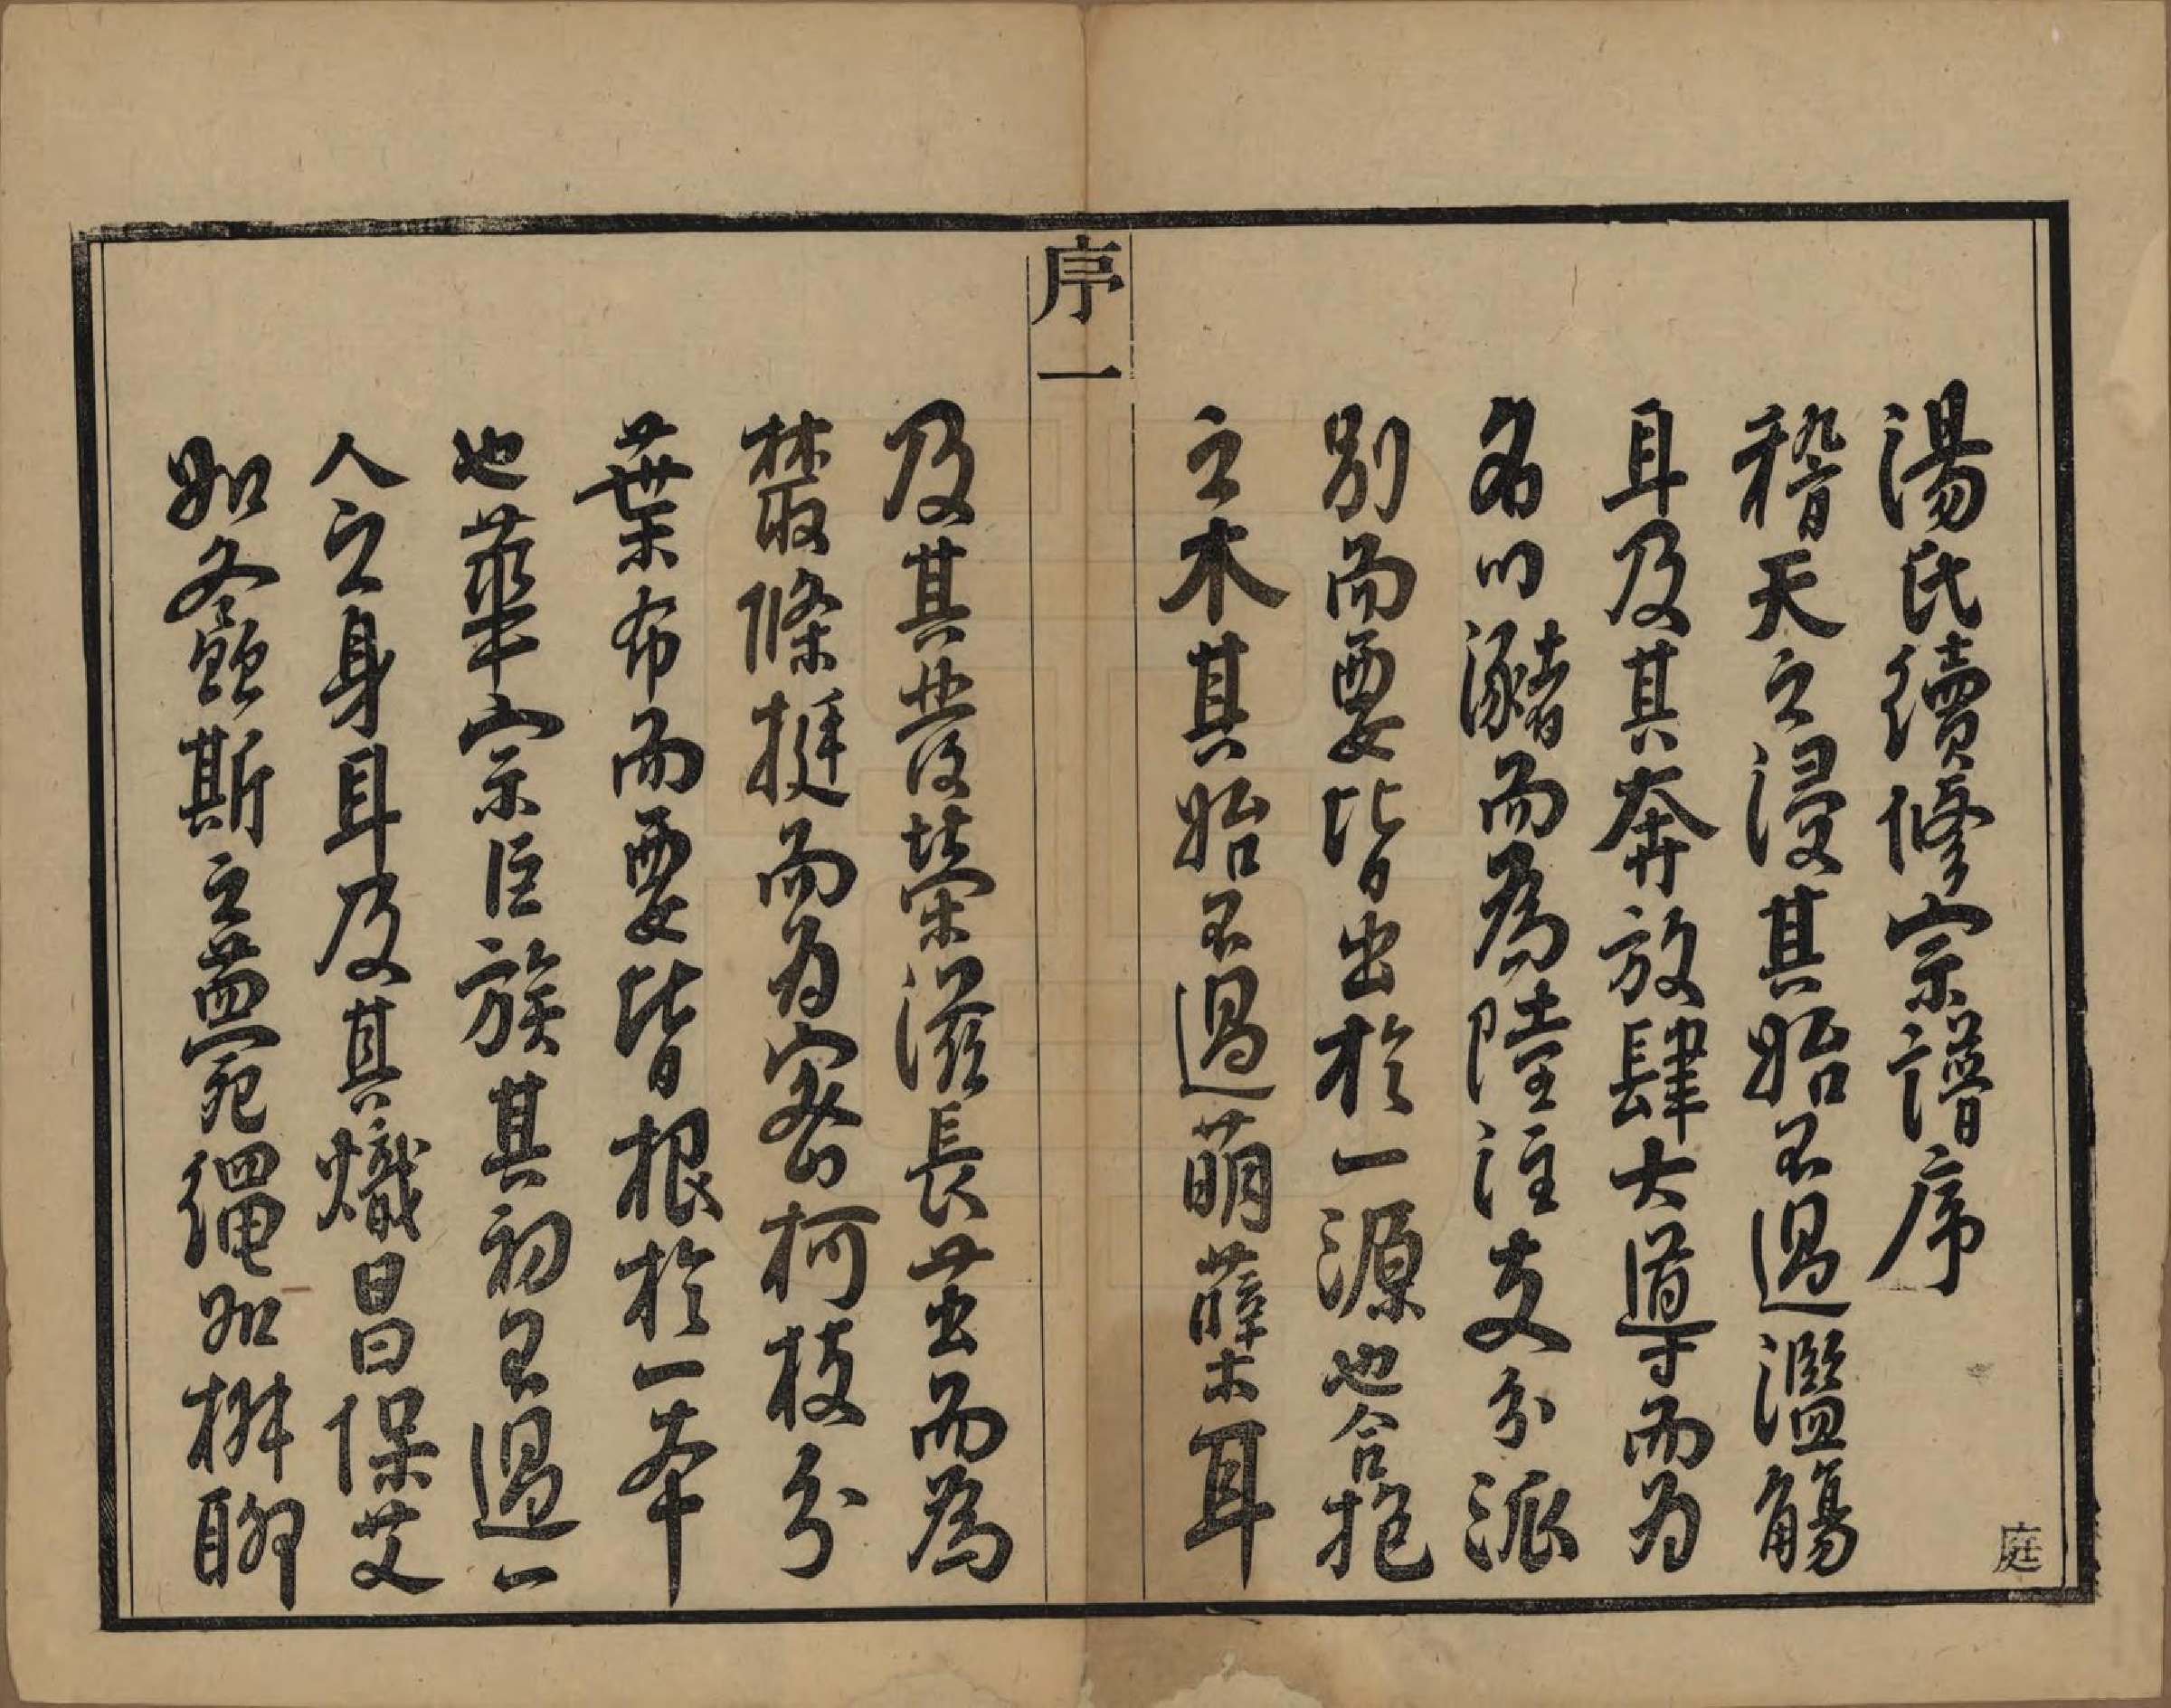 湯氏續修宗譜序
稽天之浸其始不過濫觴
耳及其奔放肆大導而為
名川瀦而為陸注支分派
別而要皆出於一源也合抱
之木其始不過萌蘗耳
序一
及其發榮滋長茁而為
叢條挺而為密柯枝分
葉布而要皆根於一本
也華宗巨族其初不過一
人之身耳及其熾昌保艾
如冬螽斯之蟄繩如椒聊
庭